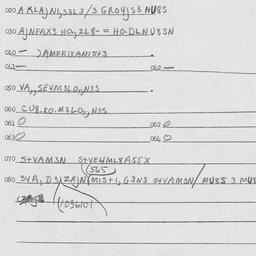 020 A KLAJNI,S3L3/3 GRO4JS3 NU8S
030 AJNFAX3 HA,2L8-= HA-DLNU8SN
040 — )AMERIKANIS+3 .
041— 042 —
050 VA,,SE4M3LO,,N3S .
060 CU8.KO.M3LO,,N3S
061 0 062 0
063 0 064 0
070 S+VAM3N S+VE4ML8ASSX
(565
080 3VA, D3,ZAJN(MIS+I, G3N3 S+VAM3N/ MU8S 3 MU8
(1036101